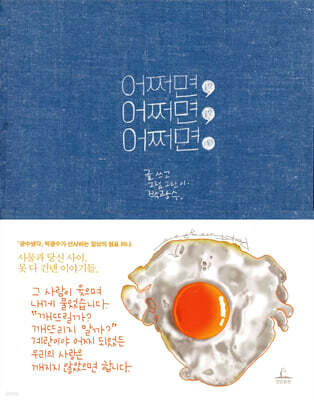 어쩌면,
어쩌면,
어쩌면.
글 쓰고
그림 그린 이.
박광수.
'광수생각, 박광수가 선사하는 일상의 쉼표 하나
사물과 당신 사이,
못 다 건넨 이야기들.
그 사람이 웃으며
내게 물었습니다
"깨뜨릴까?
깨뜨리지 말까?"
계란이야 어찌 되었든
우리의 사랑은
깨지지 않았으면 합니다.